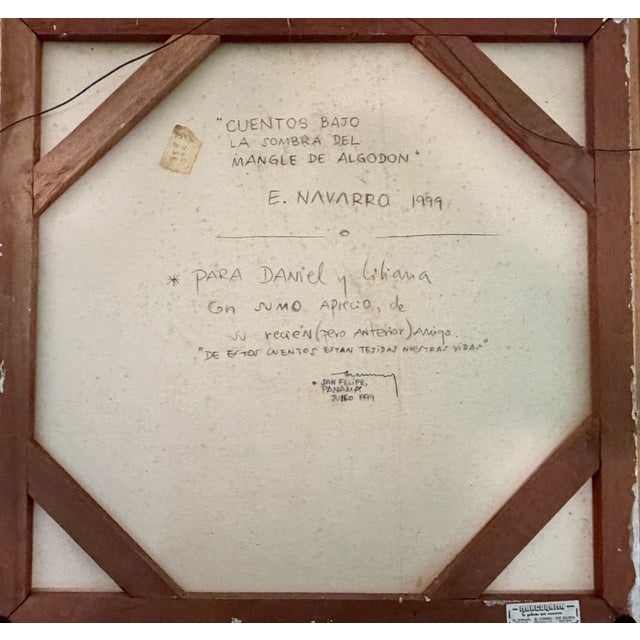 "CUENTOS BAJO
LA SOMBRA DEL
MANGLE DE ALGODON"
E. NAVARRO 1999
* PARA DANIEL y Liliana
CON SUMO APRECIO, de
su recién (pero ANTERIOR) AMIGO.
"DE ESTOS CUENTOS ESTAN TEJIDAS NUESTRAS VIDAS"
• SAN FELIPE,
PANAMA
1999